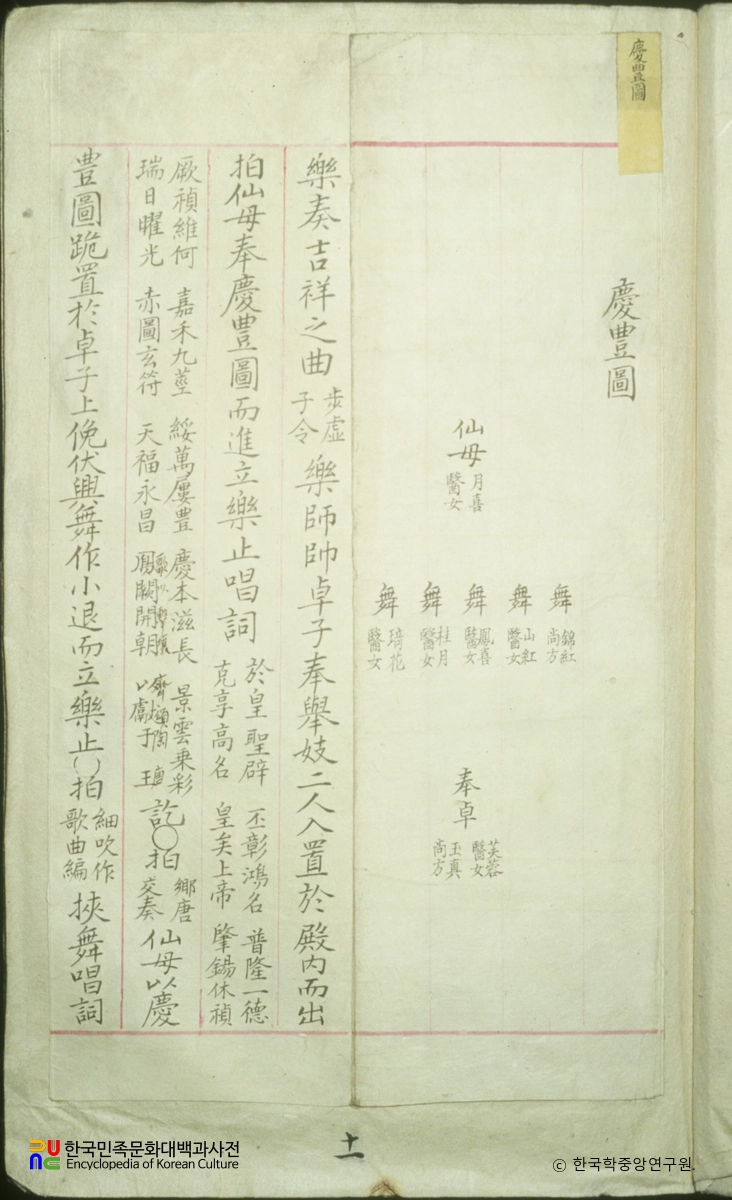 慶豊圖
慶豊圖
仙母 月喜 醫女
舞 錦紅 尚方
舞 山紅 醫女
舞 鳳喜 醫女
舞 桂月 醫女
舞 琦花 醫女
奉卓 芙蓉 醫女 玉真 尚方
樂奏吉祥之曲 步虛子令 樂師帥卓子奉舉妓二人入置於殿內而出
拍仙母奉慶豊圖而進立樂止唱詞 於皇聖辟 丕彰鴻名 普隆一德
克享高名 皇矣上帝 肇錫休禎
厥禎維何 嘉禾九莖 綏萬屢豊 慶本滋長 景雲乗彩
瑞日曜光 赤圖玄符 天福永昌 鳳闕開朝 以獻于 王 訖○拍 鄉唐交奏 仙母以慶
豊圖跪置於卓子上俛伏興舞作小退而立樂止○拍 細吹作歌曲編 挾舞唱詞
十一
한국민족문화대백과사전
Encyclopedia of Korean Culture
© 한국학중앙연구원